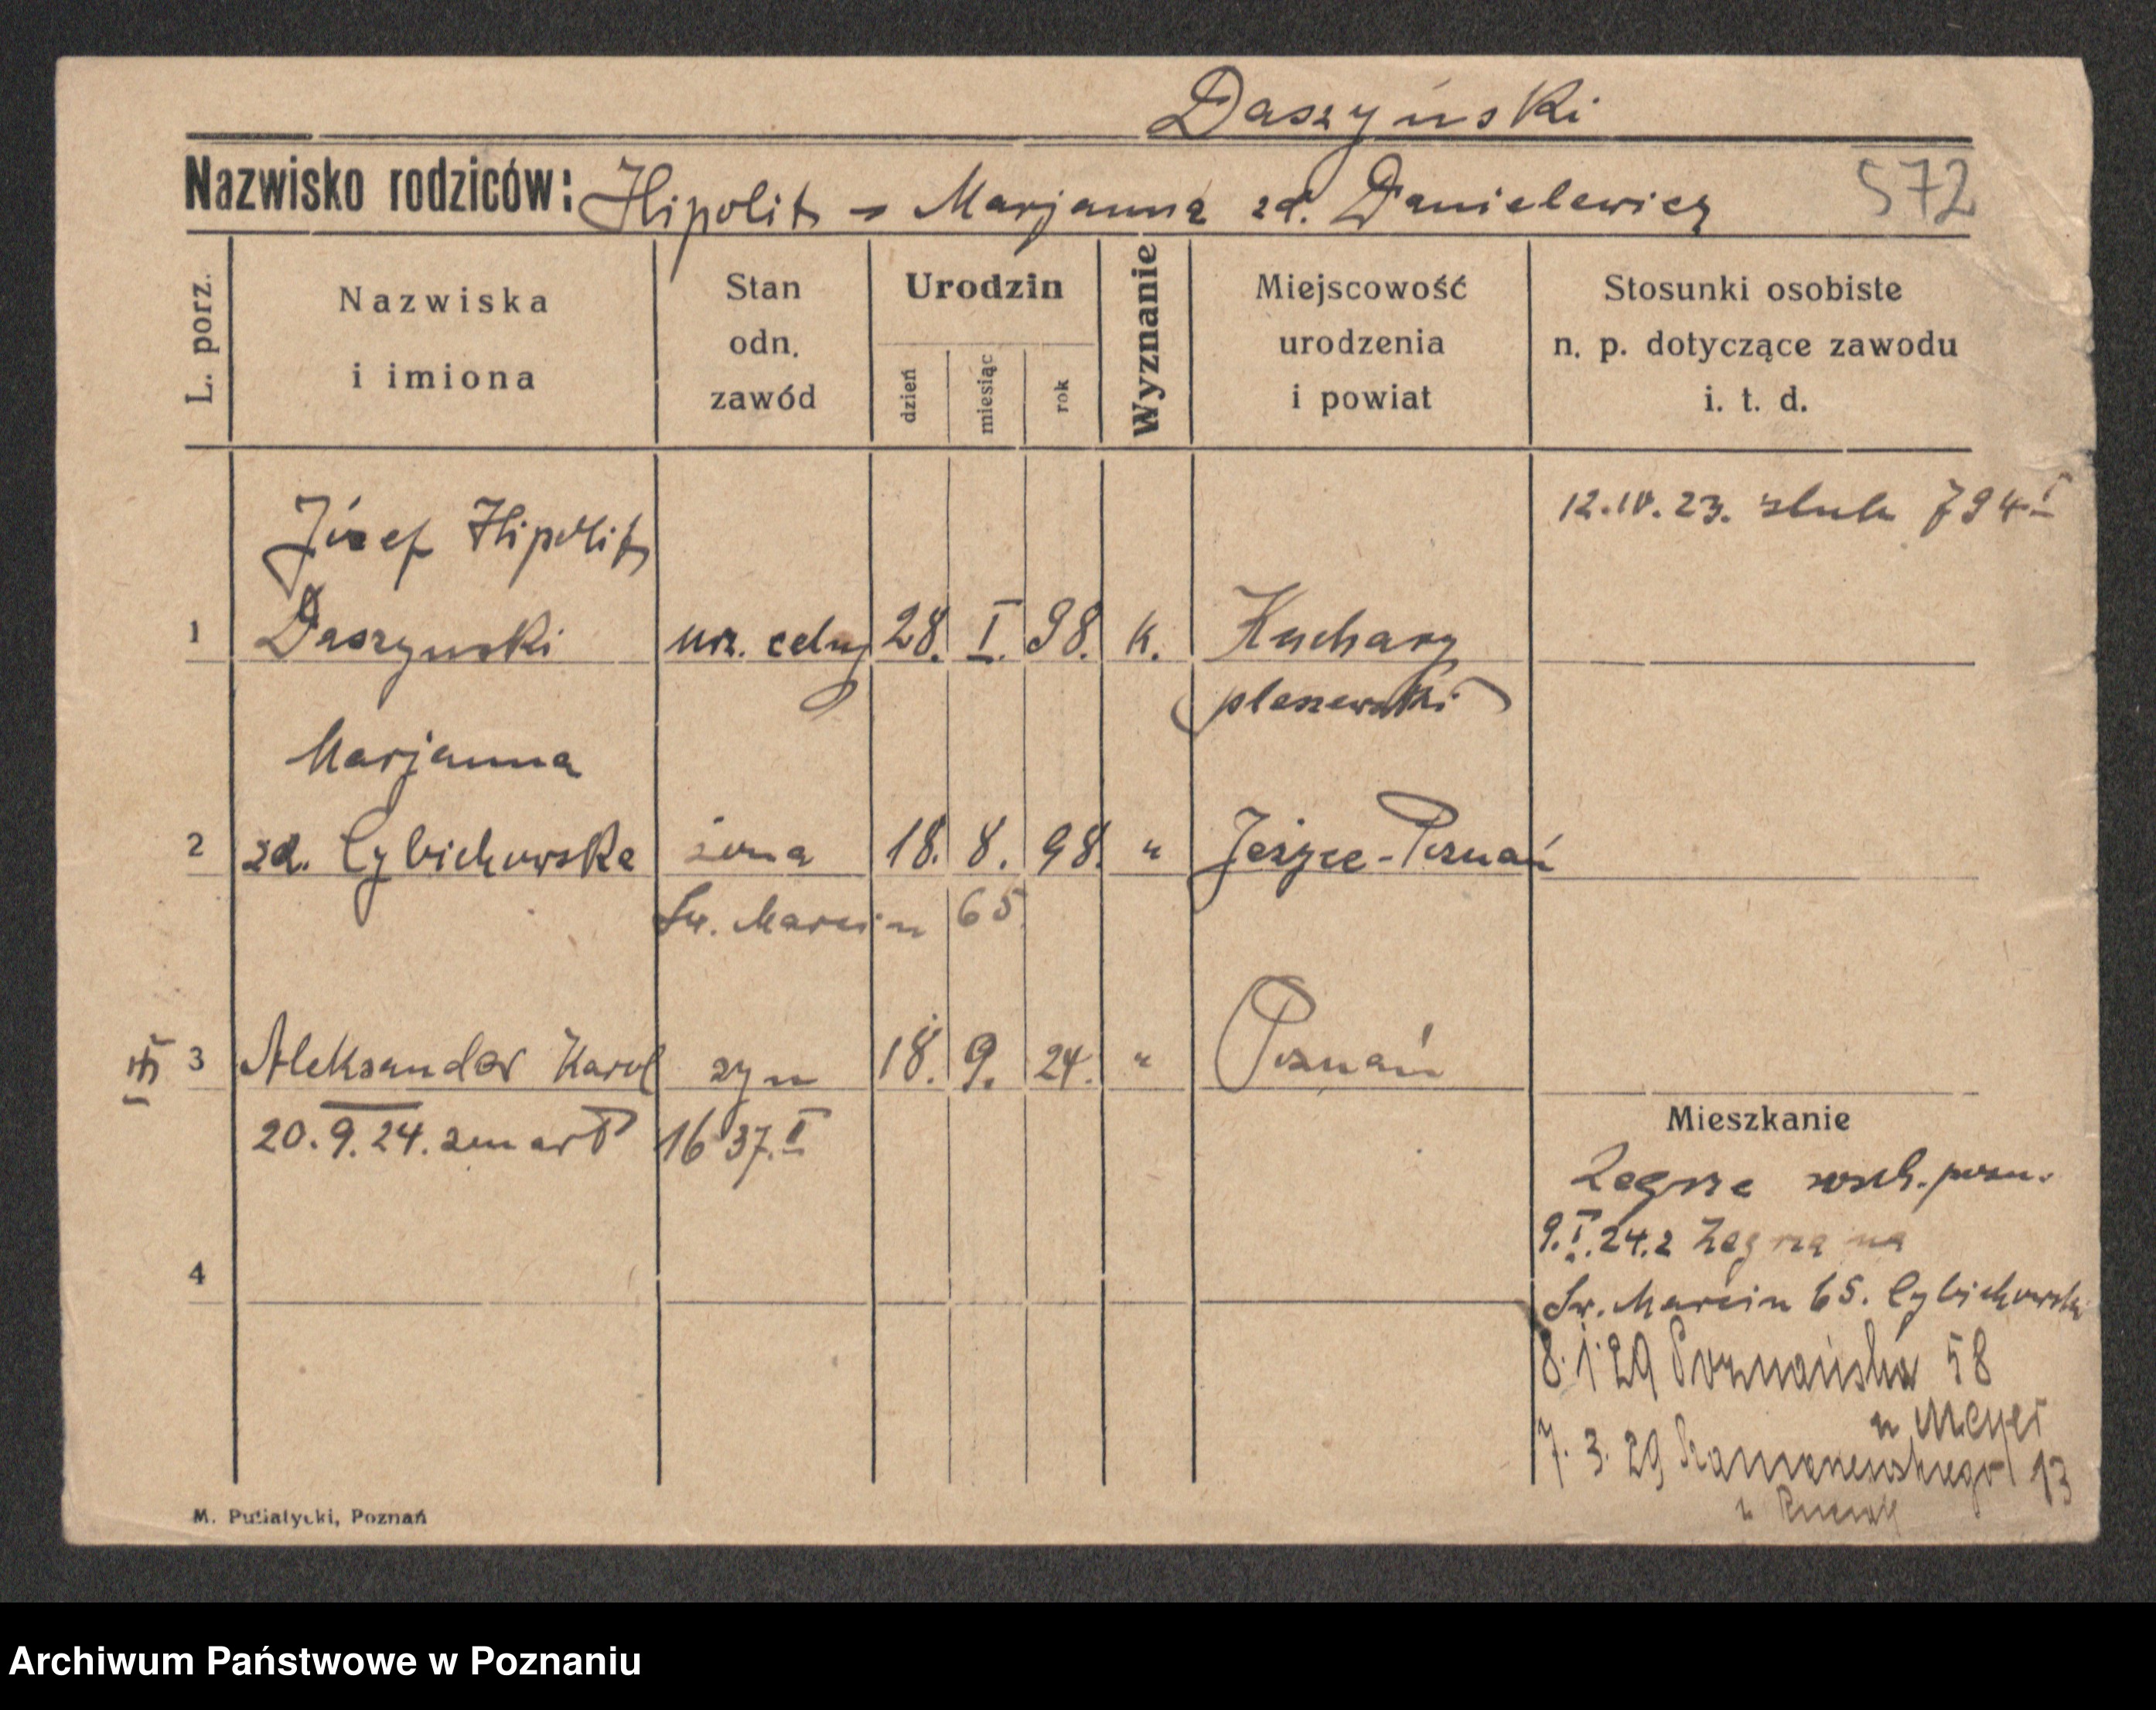 Daszyński
Nazwisko rodziców: Hipolit - Marjanna zd. Danielewicz 572
L. porz.
Nazwiska
i imiona
Stan
odn.
zawód
Urodzin
dzień
miesiąc
rok
Wyznanie
Miejscowość
urodzenia
i powiat
Stosunki osobiste
n. p. dotyczące zawodu
i. t. d.
12.IV.23. ślub 794 I
Józef Hipolit
1 Daszynski urz. celny 28. I. 98. k. Kuchary
pleszewski
Marjanna
2 zd. Cybichowska żona 18. 8. 98. " Jeżyce-Poznań
Św. Marcin 65
III 3 Aleksander Karol syn 18. 9. 24. " Poznań
20.9.24. zmarł 1637.I
Mieszkanie
Zegrze wsch. pozn.
9.I.24. z Zegrza na
Św. Marcin 65. Cybichowski
4
8.1.29 Poznańska 58
u Meyer
7.3.29 13
u
M. Putiatycki, Poznań
Archiwum Państwowe w Poznaniu